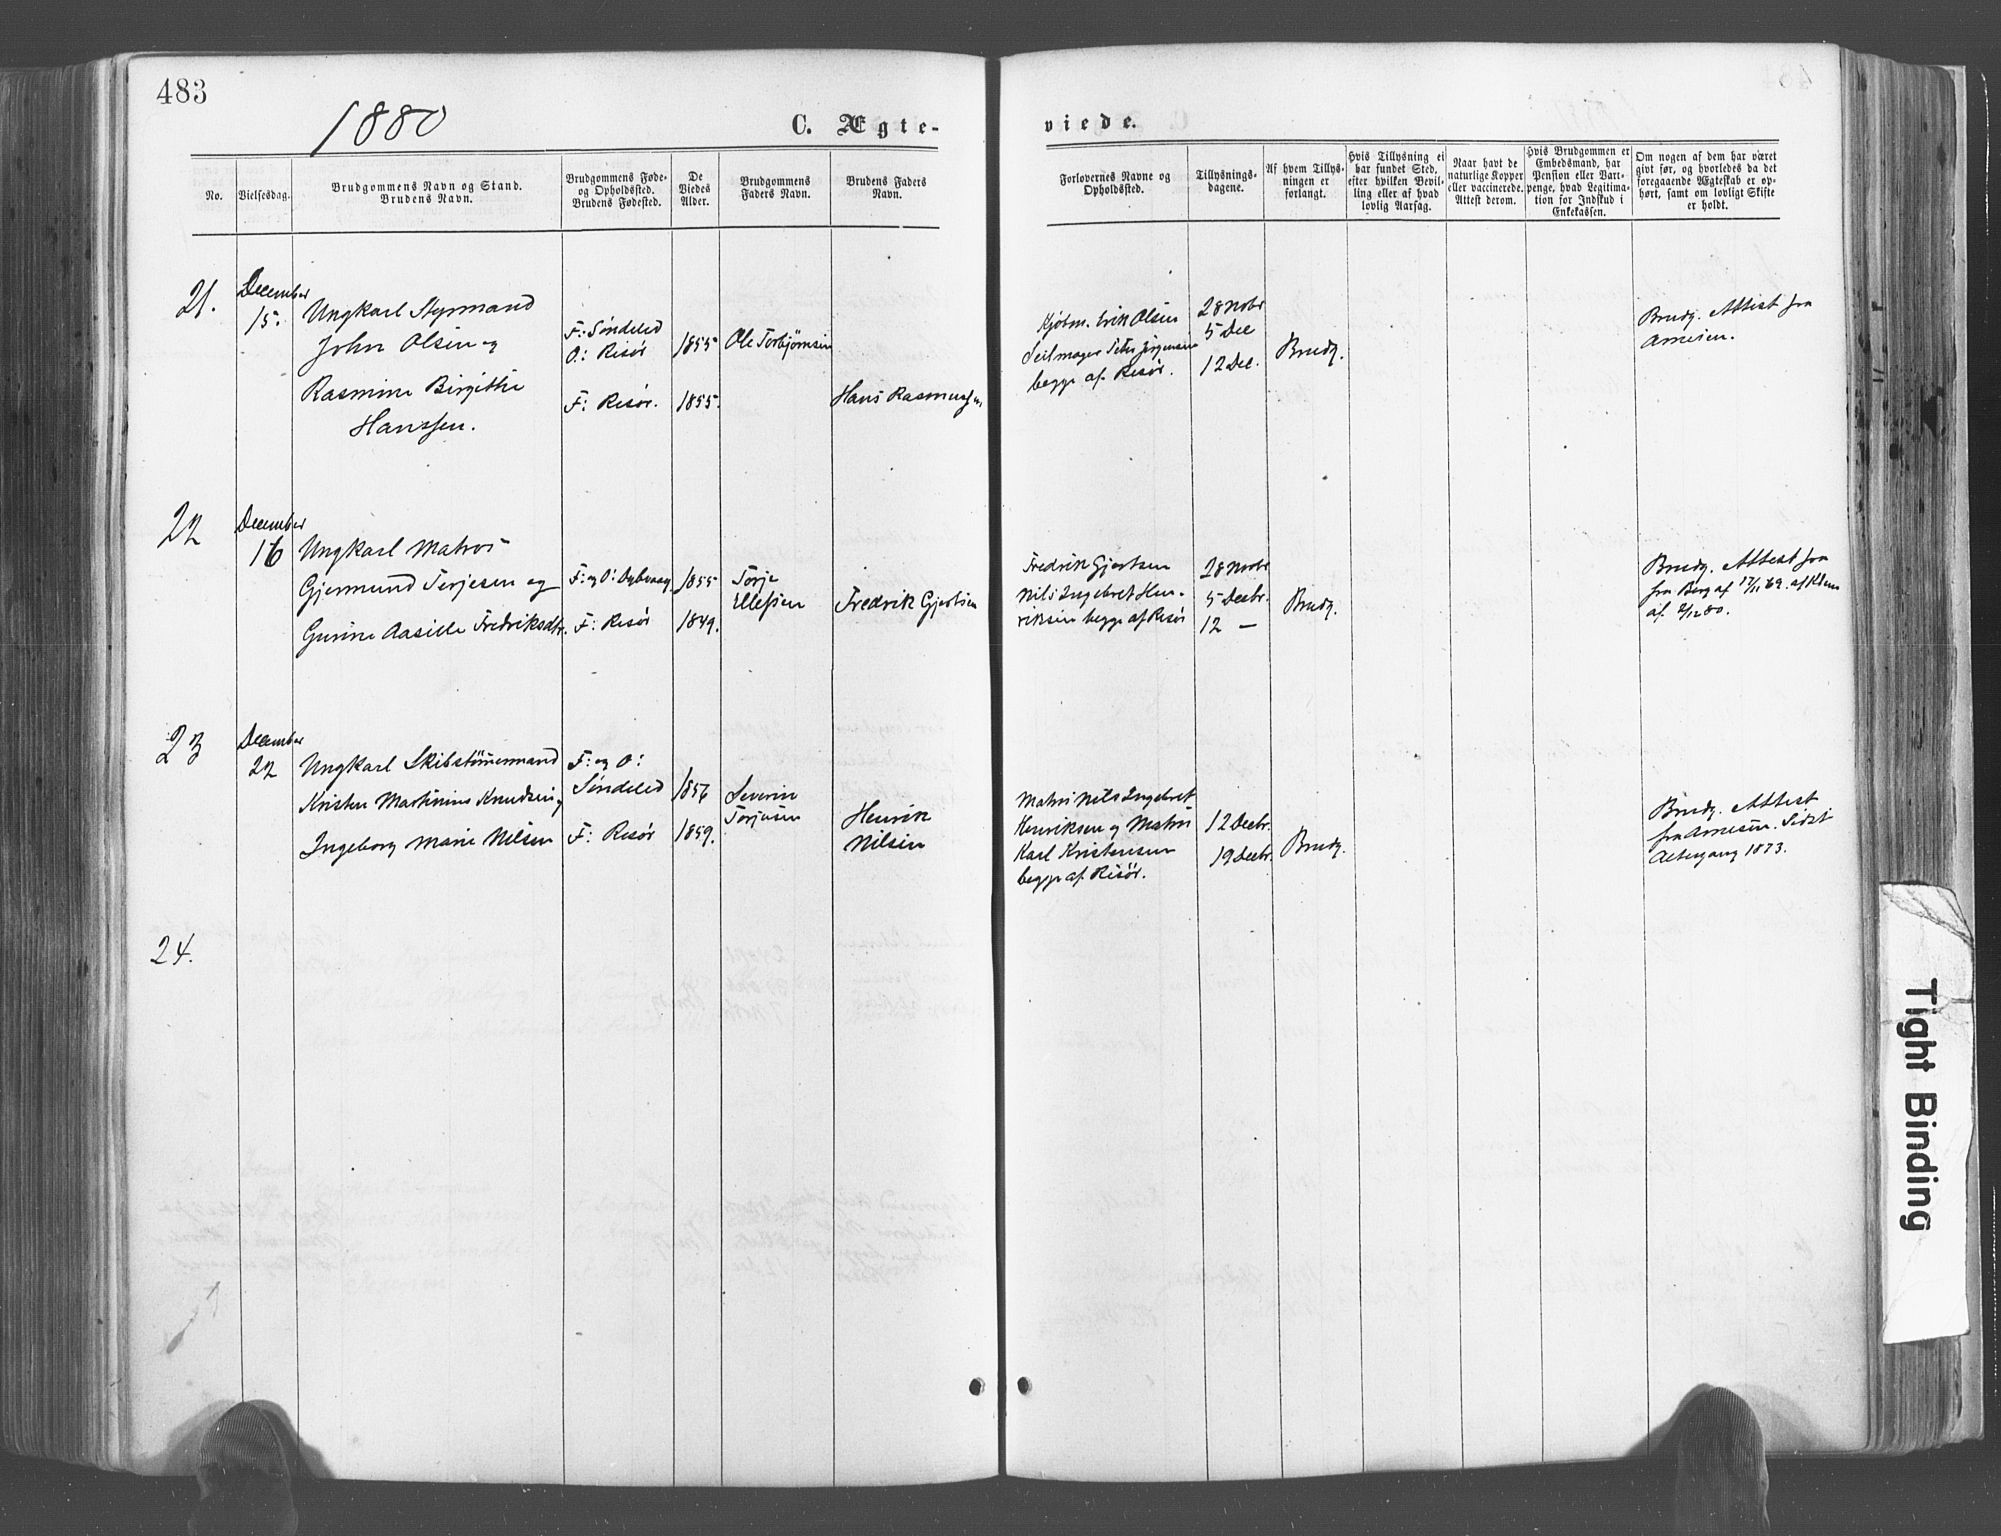 483
1880
C. Ægte-
viede.
No.
Vielsesdag.
Brudgommens Navn og Stand.
Brudens Navn.
Brudgommens Føde-
og Opholdssted.
Brudens Fødested.
De
Viedes
Alder.
Brudgommens
Faders Navn.
Brudens Faders
Navn.
Forlovernes Navne og
Opholdssted.
Tillysnings-
dagene.
Af hvem Tillys-
ningen er
forlangt.
Hvis Tillysning ei
har fundet Sted,
efter hvilken Bevil-
ling eller af hvad
lovlig Aarsag.
Naar havt de
naturlige Kopper
eller vaccinerede.
Attest derom.
Hvis Brudgommen er
Embedsmand, har
Pension eller Vart-
penge, hvad Legitima-
tion for Indskud i
Enkekassen.
Om nogen af dem har været
gift før, og hvorledes da det
foregaaende Ægteskab er op-
hørt, samt om lovligt Skifte
er holdt.
21.
December
15.
Ungkarl Styrmand
John Olsen og
Rasmine Birgitte
Hanssen.
F: Søndeled
O: Risør
F: Risør.
1855
1855.
Ole Torbjörnsen
Hans Rasmussen
Kjöbm. Erik Olsen
Seilmager Peter Jörgensen
begge af Risør.
28 Novbr
5 Dec
12 Dec.
Brudg.
Brudg. Attest fra
Arnesen.
22
December
16
Ungkarl Matros
Gjermund Terjesen og
Gurine Aasille Fredriksdtr.
F: og O: Dybvaag
F: Risør
1855
1849.
Torje
Ellefsen
Fredrik Gjertsen
Fredrik Gjertsen
Nils Ingebret Hen-
riksen begge af Risør
28 Novbr
5 Decbr.
12 —
Brudg.
Brudg. Attest fra
fra Berg af 17/11 69. af
af 2/12 80.
23
December
22
Ungkarl Skibstömmermand
Kristen Martinius Knudsen og
Ingeborg Marie Nilsen
F: og O:
Søndeled
F: Risør
1856
1859.
Severin
Torjusen
Henrik
Nilsen
Matros Nils Ingebret
Henriksen og Matros
Karl Kristensen
begge af Risør.
12 Decbr.
19 Decbr.
Brudg.
Brudg. Attest
fra Arnesen. Sidst
Altergang 1873.
24.
Tight Binding